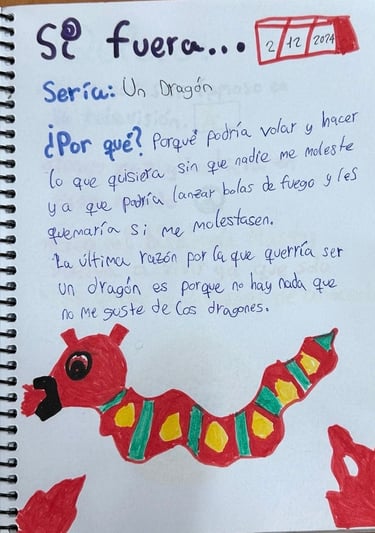 Si fuera...
2 12 2024
Sería: Un Dragón
¿Por qué? Porque podría volar y hacer
lo que quisiera sin que nadie me moleste
y a que podría lanzar bolas de fuego y les
quemaría si me molestasen.
La última razón por la que querría ser
un dragón es porque no hay nada que
no me guste de los dragones.